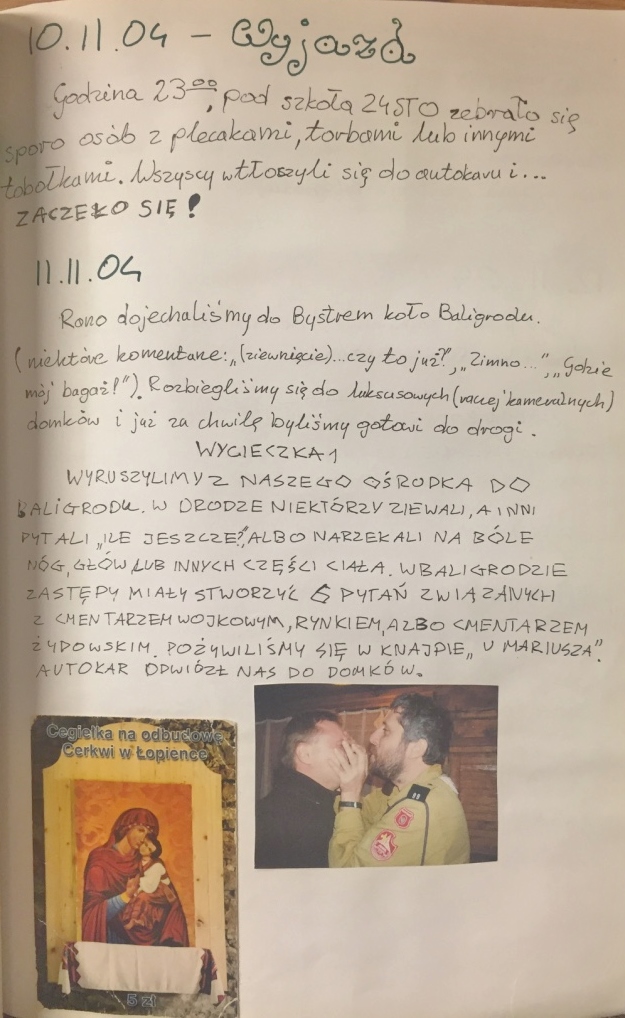 10.11.04 – Wyjazd
Godzina 23⁰⁰, pod szkołą 24STO zebrało się
sporo osób z plecakami, torbami lub innymi
tobołkami. Wszyscy wtłoszyli się do autokaru i...
ZACZĘŁO SIĘ!
11.11.04
Rano dojechaliśmy do Bystrem koło Baligrodu.
(niektóre komentarze: „(ziewnięcie)...czy to już?", „Zimno...", „Gdzie
mój bagaż!"). Rozbiegliśmy się do luksusowych (raczej kameralnych)
domków i już za chwilę byliśmy gotowi do drogi.
WYCIECZKA 1
WYRUSZYLIMY Z NASZEGO OŚRODKA DO
BALIGRODU. W DRODZE NIEKTÓRZY ZIEWALI, A INNI
PYTALI „ILE JESZCZE?", ALBO NARZEKALI NA BÓLE
NÓG, GŁÓW LUB INNYCH CZĘŚCI CIAŁA. W BALIGRODZIE
ZASTĘPY MIAŁY STWORZYĆ 6 PYTAŃ ZWIĄZANYCH
Z CMENTARZEM WOJKOWYM, RYNKIEM, ALBO CMENTARZEM
ŻYDOWSKIM. POŻYWILIŚMY SIĘ W KNAJPIE „U MARIUSZA".
AUTOKAR ODWIÓZŁ NAS DO DOMKÓW.
Cegiełka na odbudowę
Cerkwi w Łopience
5 zł